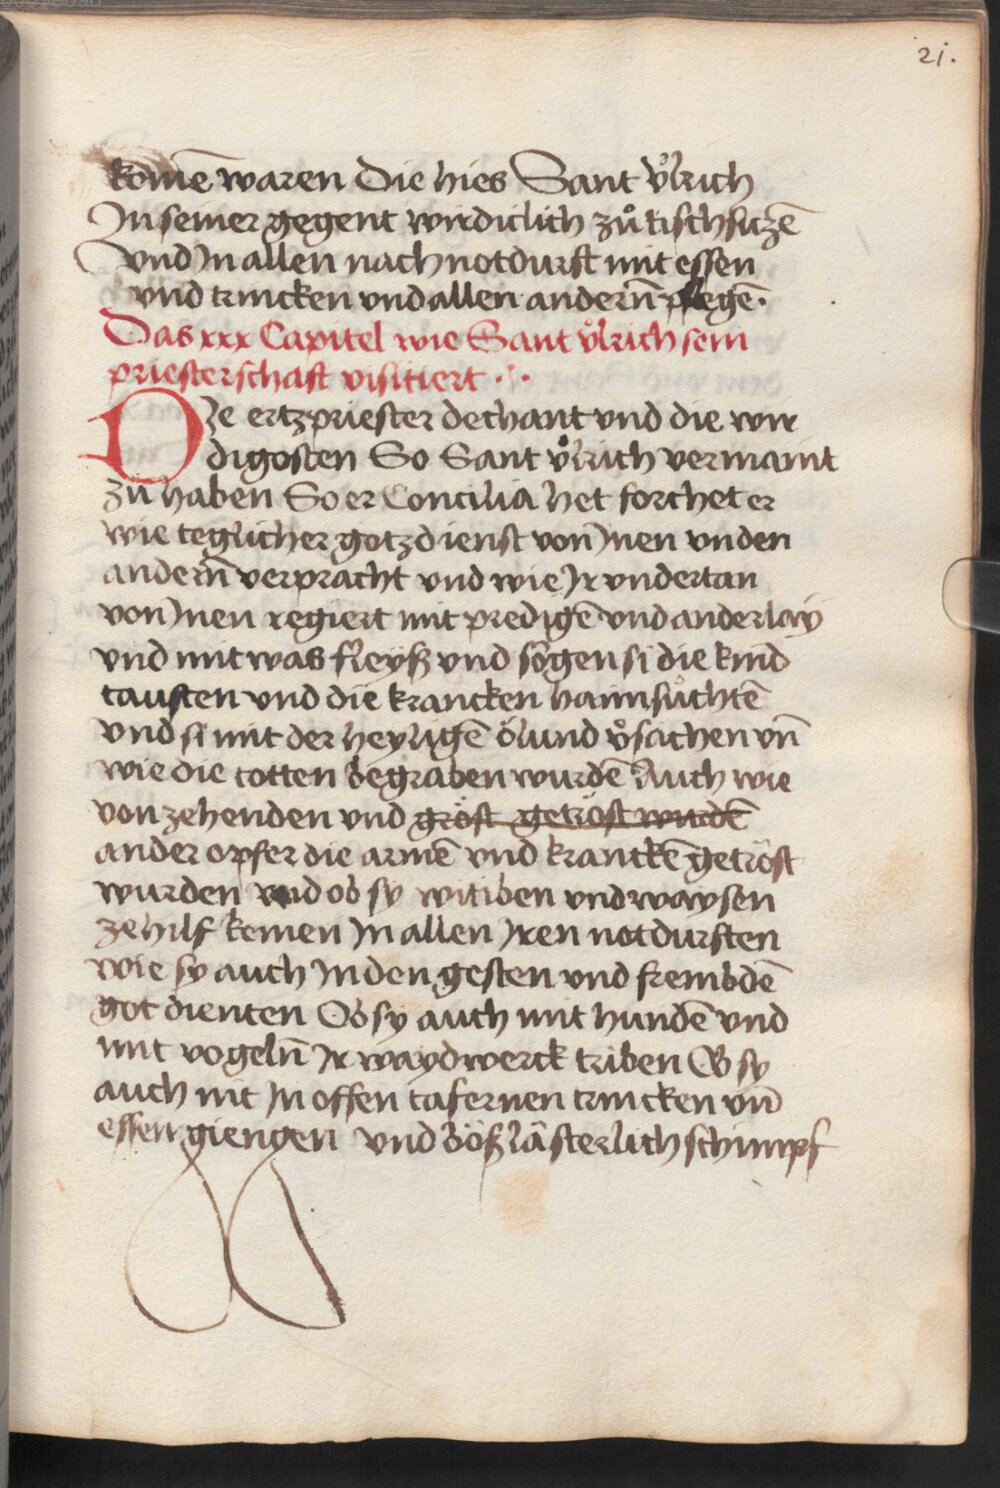 21.
komē waren Die hies Sant Vͦlrich
In seiner gegent wirdiclich zuͦ tisch sitzē
vnd In allen nach notdurft mit essen
vnd trincken vnd allen andern̄ pflegē.
Das xxx Capitel wie Sant vͦlrich sein
priesterschaft visitiert
Die ertzpriester dechant vnd die wir
digosten So Sant vͦlrich vermaint
zu haben So er Concilia het forchet er
wie teglicher gotzdienst von Inen vnden
andern̄ verpracht vnd wie Ir vndertan
von Inen regiert mit predigē vnd anderlay
vnd mit was fleyß vnd sorgen si die kind
tauften vnd die krancken haimsuͦchtē
vnd si mit der heyligē ölund vͦsachen vn̄
wie die totten begraben wurdē Auch wie
von zehenden vnd gröst getröst wurdē
ander opfer die armē vnd kranckē getröst
wurden vnd ob sy witiben vnd waysen
ze hilf kemen In allen Iren notdurften
wie sy auch In den gesten vnd frembdē
got dienten Ob sy auch mit hundē vnd
mit vogeln̄ Ir waydwerck triben Ob sy
auch nit In offen tafernen trincken vn̄
essen giengen vnd böß lästerlich schimpf